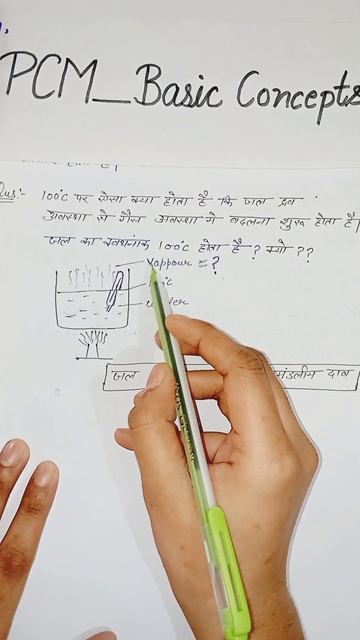 PCM_Basic Concepts
Qus:- 100°C पर ऐसा क्या होता है कि जल द्रव
अवस्था से गैस अवस्था में बदलना शुरू होता है।
जल का क्वथनांक 100°C होता है? क्यों ??
Vappour = ?
°C
जल
मंडलीय दाब